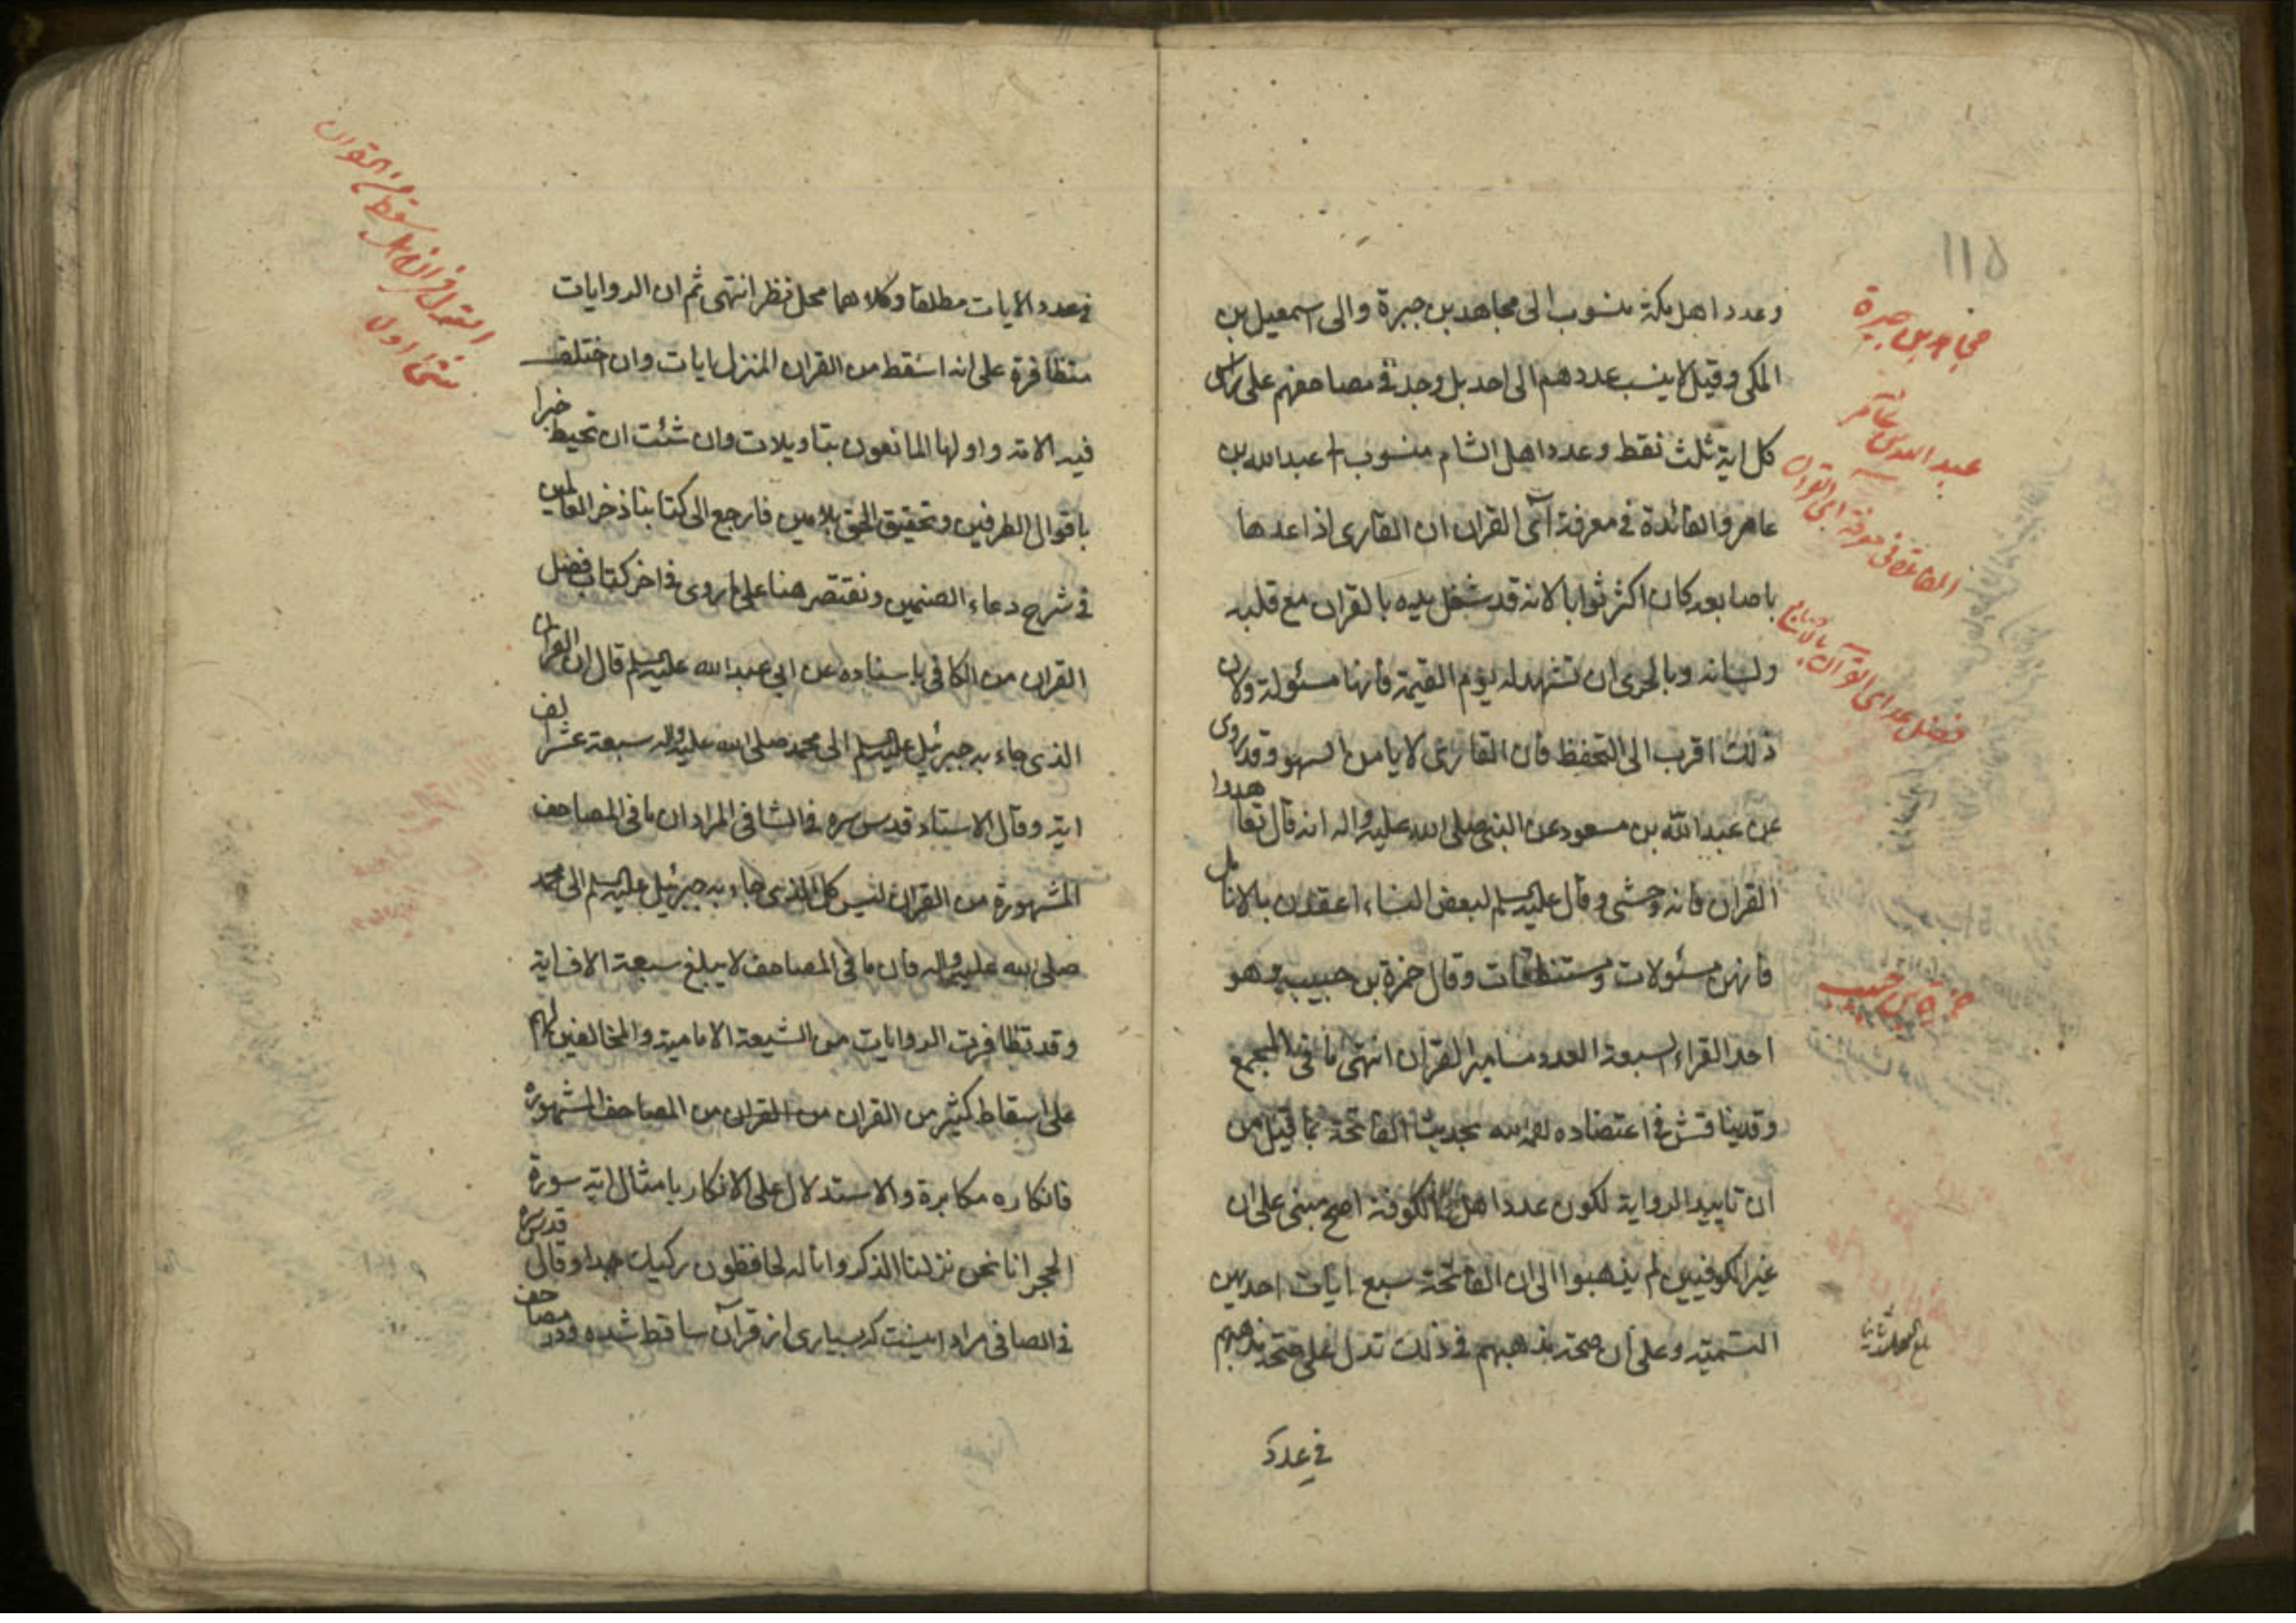 115
وعدد اهل مكة منسوب الى مجاهد بن جبرة والى اسمعيل بن
المكى وقيل لا ينسب عددهم الى احد بل وجد فى مصاحفهم على راس
كل اية ثلث نقط وعدد اهل الشام منسوب الى عبد الله بن
عامر والفائدة فى معرفة آى القران ان القارى اذا عدها
باصابعه كان اكثر ثوابا لانه قد شغل يده بالقران مع قلبه
ولسانه وبالحرى ان تشهد له يوم القيمة فانها مسئولة ولان
ذلك اقرب الى التحفظ فان القارى لا يامن السهو وقد روى
عن عبد الله بن مسعود عن النبى صلى الله عليه واله انه قال تعاهدوا
القران فانه وحشى وقال عليه السلم لبعض النساء اعقدن بالانامل
فانهن مسئولات ومستنطقات وقال حمزة بن حبيب وهو
احد القراء السبعة العدد مسامير القران انتهى ما فى المجمع
وقد يناقش فى اعتضاده رحمه الله بحديث الفاتحة بما قيل من
ان تاييد الرواية لكون عدد اهل الكوفة اصح مبنى على ان
غير الكوفيين لم يذهبوا الى ان الفاتحة سبع ايات احديهن
التسمية وعلى ان صحة مذهبهم فى ذلك تدل على صحة مذهبهم
فى عدد
مجاهد بن جبرة
عبد الله بن عامر
الفائدة فى معرفة اى القران
فضل عد اى القرآن بالاصابع
حمزة بن حبيب
فى عدد الايات مطلقا وكلاهما محل نظر انتهى ثم ان الروايات
متظافرة على انه اسقط من القران المنزل ايات وان اختلف
فيه الامة واولها المانعون بتاويلات وان شئت ان تحيط خبرا
باقوال الطرفين وتحقيق الحق بلا مين فارجع الى كتابنا ذخر العالمين
فى شرح دعاء الصنمين ونقتصر هنا على ما روى فى اخر كتاب فضل
القران من الكافى باسناده عن ابى عبد الله عليه السلم قال ان القران
الذى جاء به جبرئيل عليه السلم الى محمد صلى الله عليه واله سبعة عشر الف
اية وقال الاستاد قدس سره فى الشافى المراد ان ما فى المصاحف
المشهورة من القران ليس كل الذى جاء به جبرئيل عليه السلم الى محمد
صلى الله عليه واله فان ما فى المصاحف لا يبلغ سبعة الاف اية
وقد تظافرت الروايات من الشيعة الامامية والمخالفين لهم
على اسقاط كثير من القران من القران من المصاحف المشهورة
فانكاره مكابرة والاستدلال على الانكار بامثال اية سورة
الحجر انا نحن نزلنا الذكر وانا له لحافظون ركيك جدا وقال قدس سره
فى الصافى مراد اينست كه بسيارى از قرآن ساقط شده ودر مصاحف